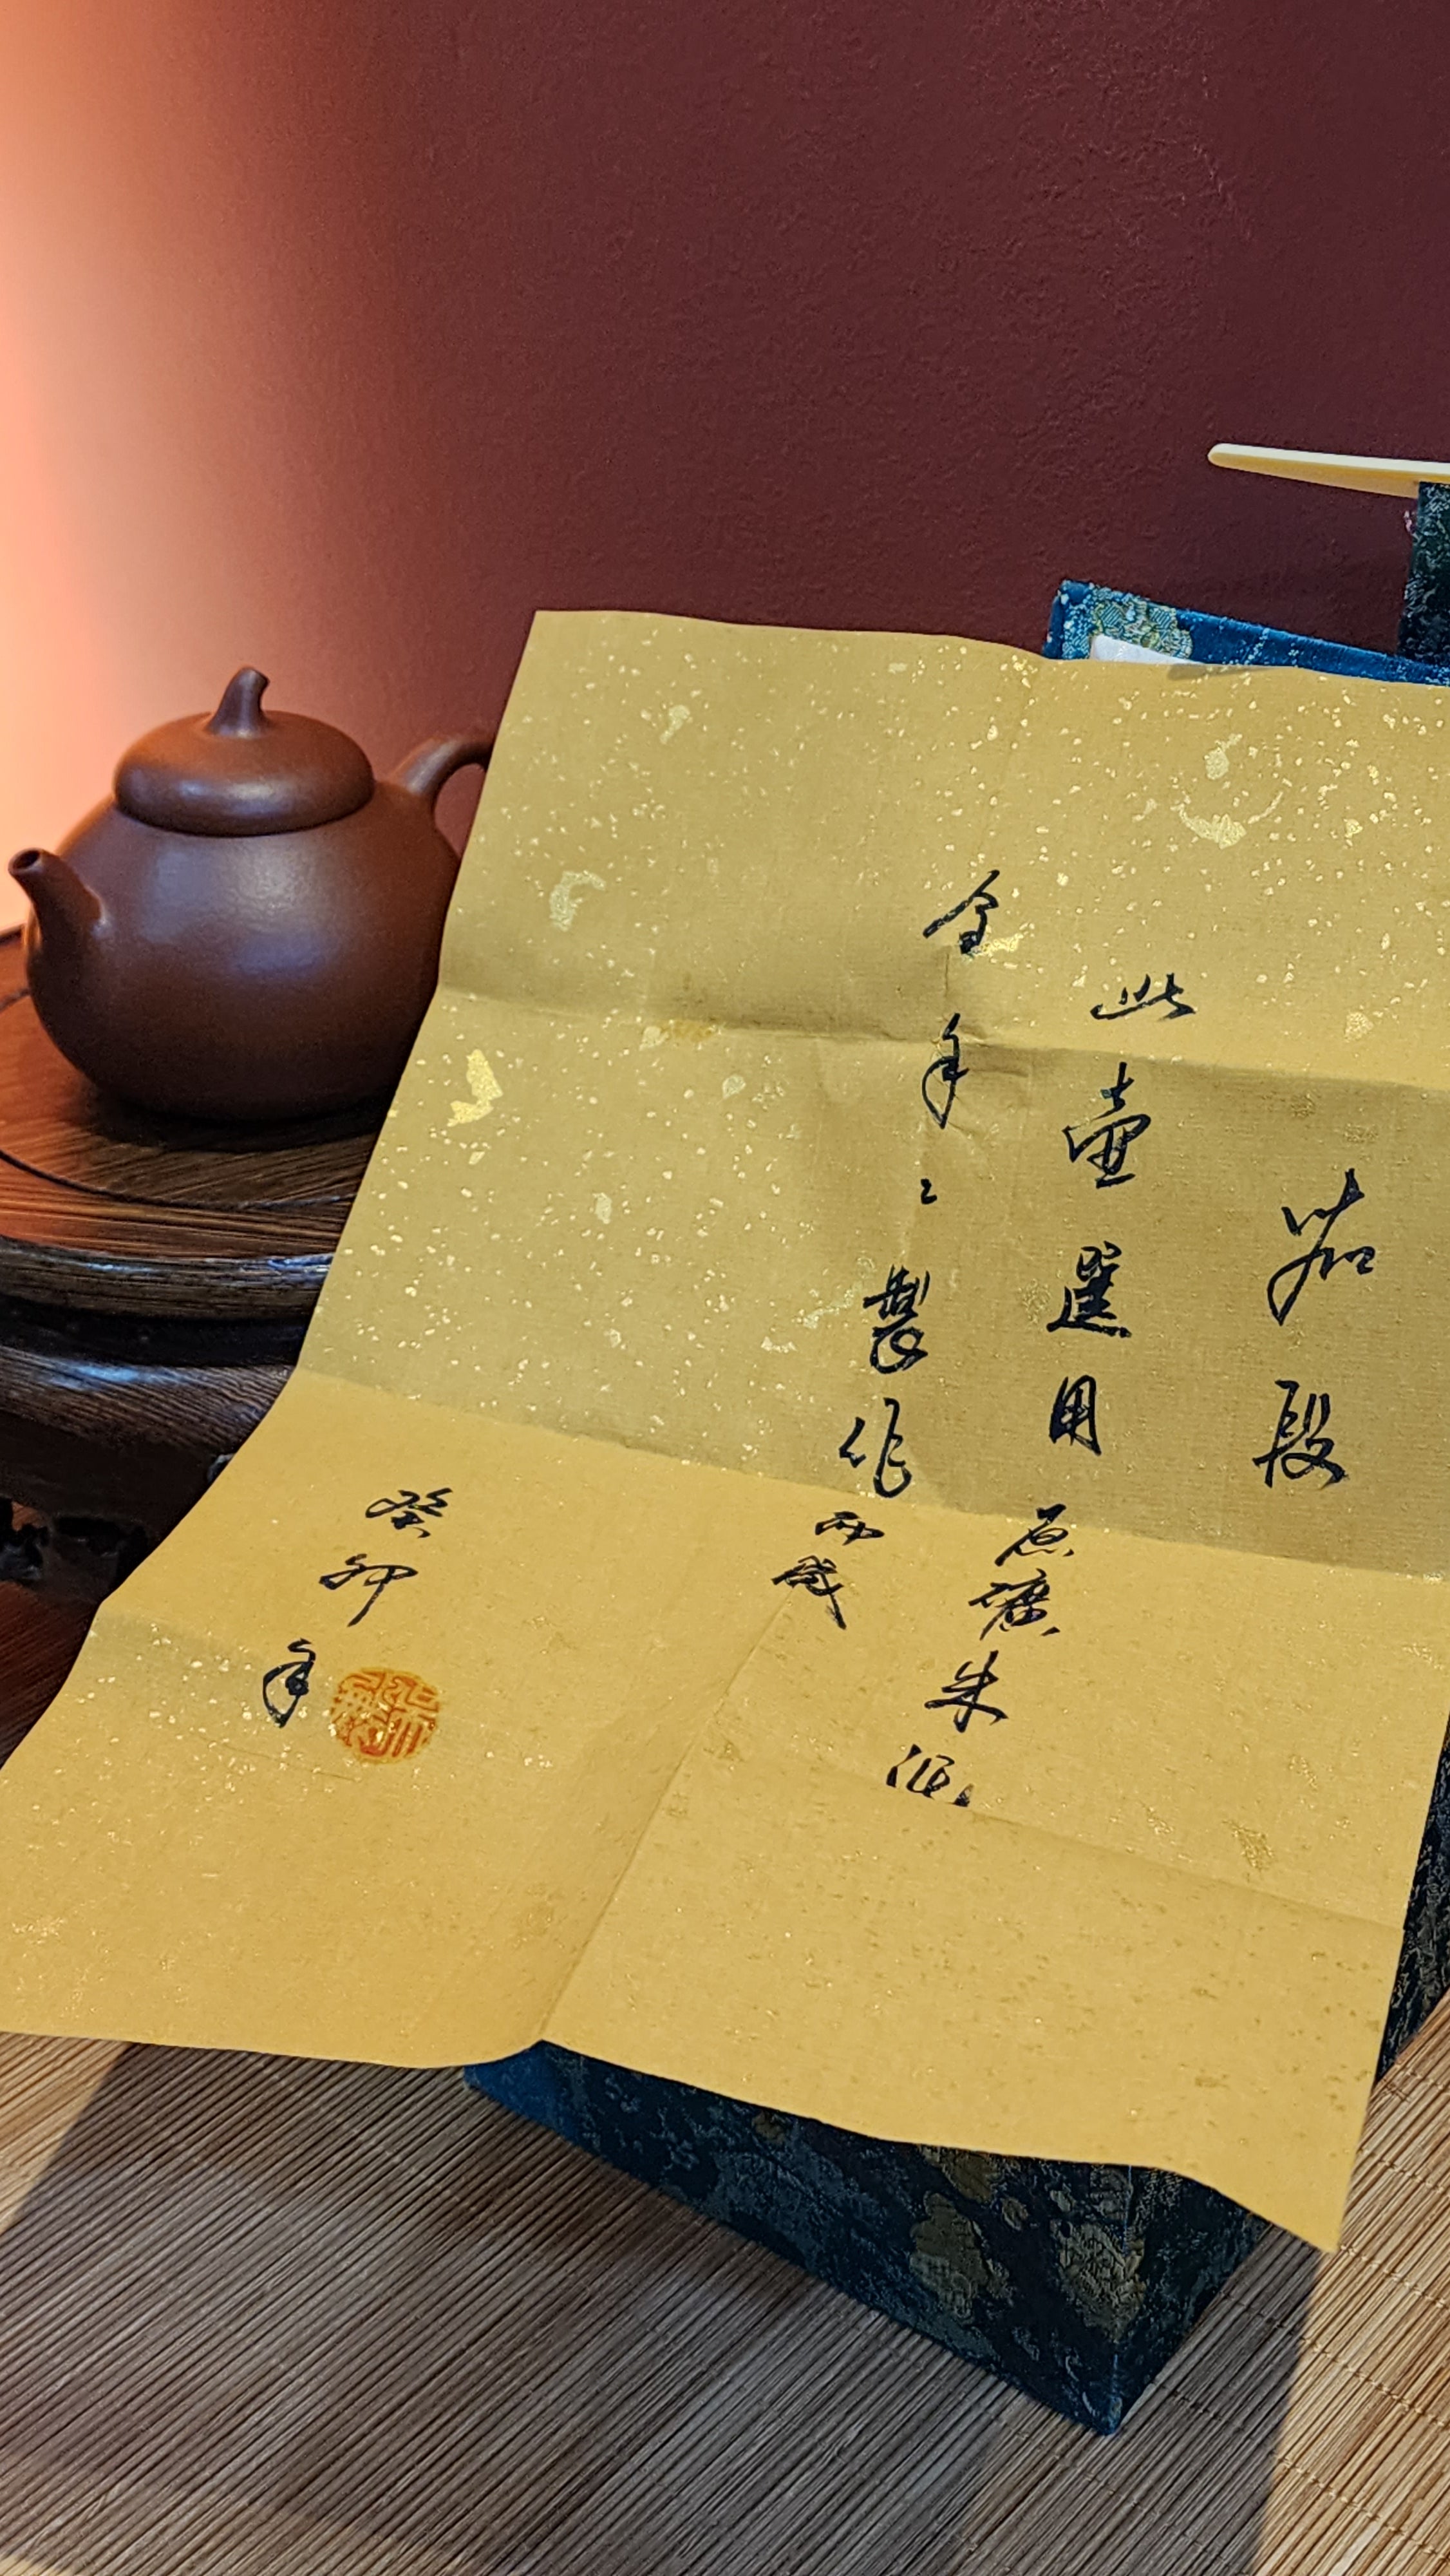 茄段
此壺選用原礦朱泥
全手工製作而成
癸卯年